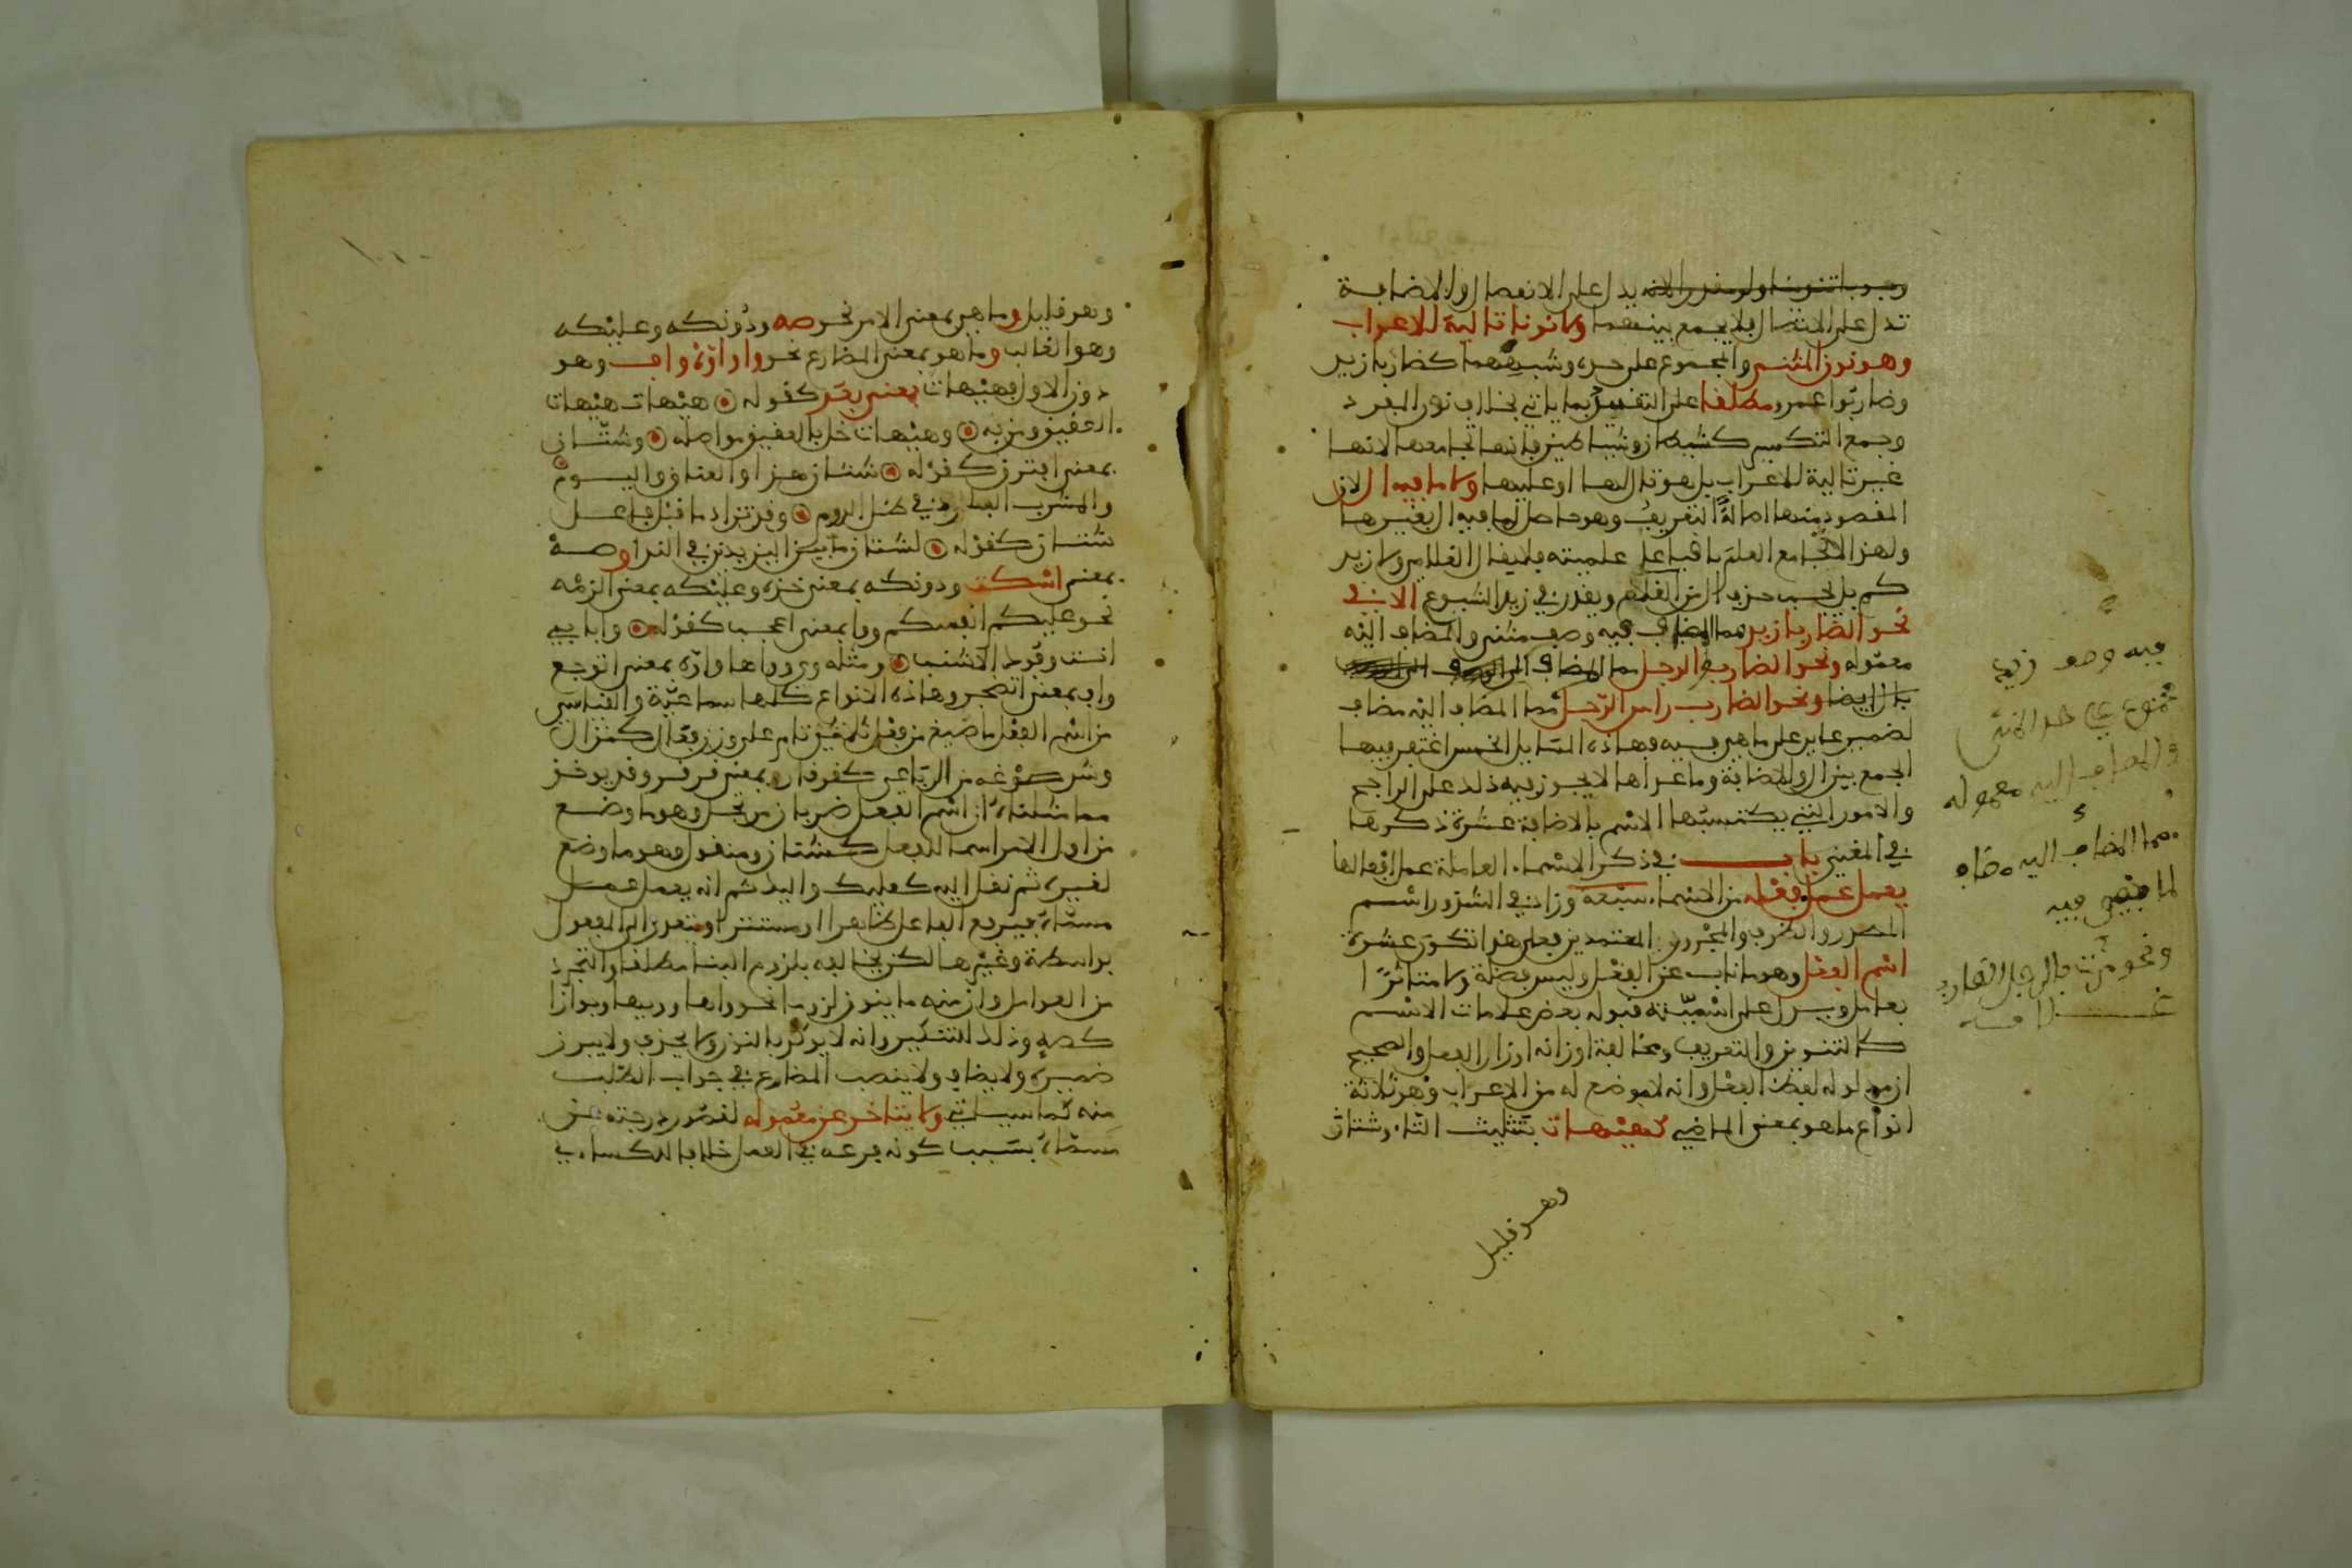 يدل على الانفصال والاضافة
تدل على الاتصال فلا يجمع بينهما ولا نونا تالية للاعراب
وهو نون المثنى والمجموع على حده وشبههما كضاربا زيد
وضاربوا عمرو مطلقا على التفسير بما ياتي بخلاف نون المفرد
وجمع التكسير كشيطان وشياطين فانها تجامعها لانها
غير تالية للاعراب بل هو تال لها او عليها ولا ما فيه ال لان
المقصود منها اصالة التعريف وهو حاصل لما فيه ال بغيرها
ولهذا لا تجامع العلم باقيا على علميته فلا يقال الغلام ولا زيد
كم بل يجب حذف ال من الغلام ويقدر في زيد الشيوع الا في
نحو الضاربا زيد مما المضاف فيه وصف مثنى والمضاف اليه
معموله ونحو الضارب الرجل مما المضاف
بال ايضا ونحو الضارب راس الرجل مما المضاف اليه مضاف
لضمير عايد على ما هي فيه فهاذه المسايل الخمس اغتفر فيها
الجمع بين ال والاضافة وما عداها لا يجوز فيه ذلك على الراجح
والامور التي يكتسبها الاسم بالاضافة عشرة ذكرها
في المغني باب في ذكر الاسماء العاملة عمل افعالها
يعمل عمل فعله من الاسماء سبعة وزاد في الشذور اسم
المصدر والظرف والمجرور المعتمدين فعلى هذا تكون عشرة
اسم الفعل وهو ما ناب عن الفعل وليس فضلة ولا متاثرا
بعامل ويدل على اسميته قبوله بعض علامات الاسم
كالتنوين والتعريف ومخالفة اوزانه اوزان الفعل والصحيح
ان مدلوله لفظ الفعل وانه لا موضع له من الاعراب وهو ثلاثة
انواع ما هو بمعنى الماضي كهيهات بتثليث التاء وشتان
وهو قليل
فيه وصف
مجموع على حد المثنى
والمضاف اليه معموله
مما المضاف اليه مضاف
لما فيه
ونحو مررت بالرجل الضارب
غلامه
وهو قليل وما هو بمعنى الامر نحو صه ودونك وعليك
وهو الغالب وما هو بمعنى المضارع نحو وا واوه واف وهو
دون الاول فهيهات بمعنى بعد كقوله هيهات هيهات
العقيق ومن به وهيهات خل بالعقيق نواصله وشتان
بمعنى افترق كقوله شتان هذا والعناق والنوم
والمشرب البارد في ظل الدوم وقد تزاد ما قبل فاعل
شتان كقوله لشتان ما بين اليزيدين في الندا وصه
بمعنى اسكت ودونك بمعنى خذه وعليك بمعنى الزمه
نحو عليكم انفسكم ووا بمعنى اعجب كقوله وا بابي
انت وفوك الاشنب ومثله وي وواها واوه بمعنى اتوجع
واف بمعنى اتضجر وهاذه الانواع كلها سماعية والقياسي
من اسم الفعل ما صيغ من فعل ثلاثي تام على وزن فعال كنزال
وشذ صوغه من الرباعي كقرقار بمعنى قرقر وقد يوخذ
مما مثلناه ان اسم الفعل ضربان مرتجل وهو ما وضع
من اول الامر اسما للفعل كشتان ومنقول وهو ما وضع
لغيره ثم نقل اليه كعليك واليك ثم انه يعمل عمل
مسماه فيرفع الفاعل ظاهرا او مستترا ويتعدى الى المفعول
بواسطة وغيرها لكن يخالفه بلزوم البنا مطلقا والتجرد
من العوامل وان منه ما ينون لزوما نحو واها وويها وجوازا
كصه وذلك للتنكير وانه لا يوكد بالنون ولا يحذف ولا يبرز
ضميره ولا يضاف ولا ينصب المضارع في جواب الطلب
منه كما سياتي ولا يتاخر عن معموله لقصور درجته عن
مسماه بسبب كونه فرعه في العمل خلافا للكساءي